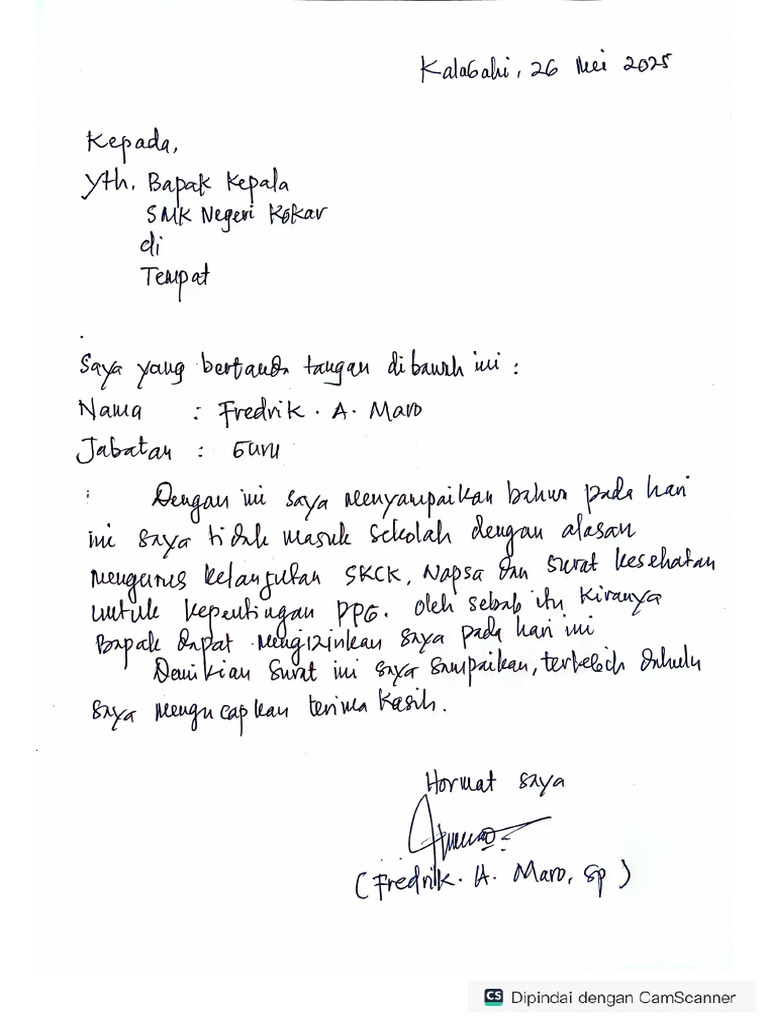 Kalabahi, 26 Mei 2025
Kepada,
Yth. Bapak Kepala
SMK Negeri Kokar
di
Tempat
Saya yang bertanda tangan dibawah ini :
Nama : Fredrik. A. Maro
Jabatan : Guru
Dengan ini saya menyampaikan bahwa pada hari
ini saya tidak masuk sekolah dengan alasan
mengurus kelanjutan SKCK, Napsa dan surat kesehatan
untuk kepentingan PPG. Oleh sebab itu kiranya
Bapak dapat mengizinkan saya pada hari ini
Demikian surat ini saya sampaikan, terlebih dahulu
saya mengucapkan terima kasih.
Hormat saya
(Fredrik. A. Maro, SP)
CS Dipindai dengan CamScanner